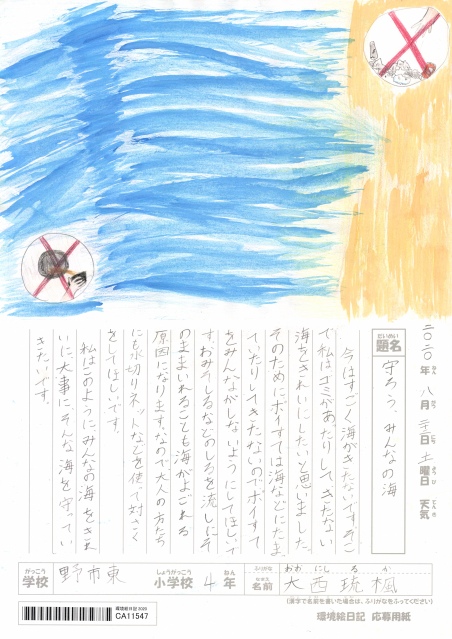 二〇二〇年 八月 三日 土曜日 天気
だいめい
題名 守ろう、みんなの海
今はすごく海がきたないです。そこ
で私はゴミがあたりしてきたない
海をきれいにしたいと思いました。
そのためにポイすては海などにたま
ていたりしてきたないのでポイすて
をみんながしないようにしてほしいで
す。おみそしるなどのしるを流しにそ
のままいれることも海がよごれる
原因になります。なので大人の方たち
にも水切りネットなどを使て対さく
をしてほしいです。
私はこのようにみんなの海をきれ
いに大事にそんな海を守ってい
きたいです。
がっこう しょうがっこう ねん ふりがな おおにし るか
学校 野市東 小学校 4年 名前 大西琉楓
(漢字で名前を書いた場合は、ふりがなをふってください)
環境絵日記2020
CA11547
環境絵日記 応募用紙